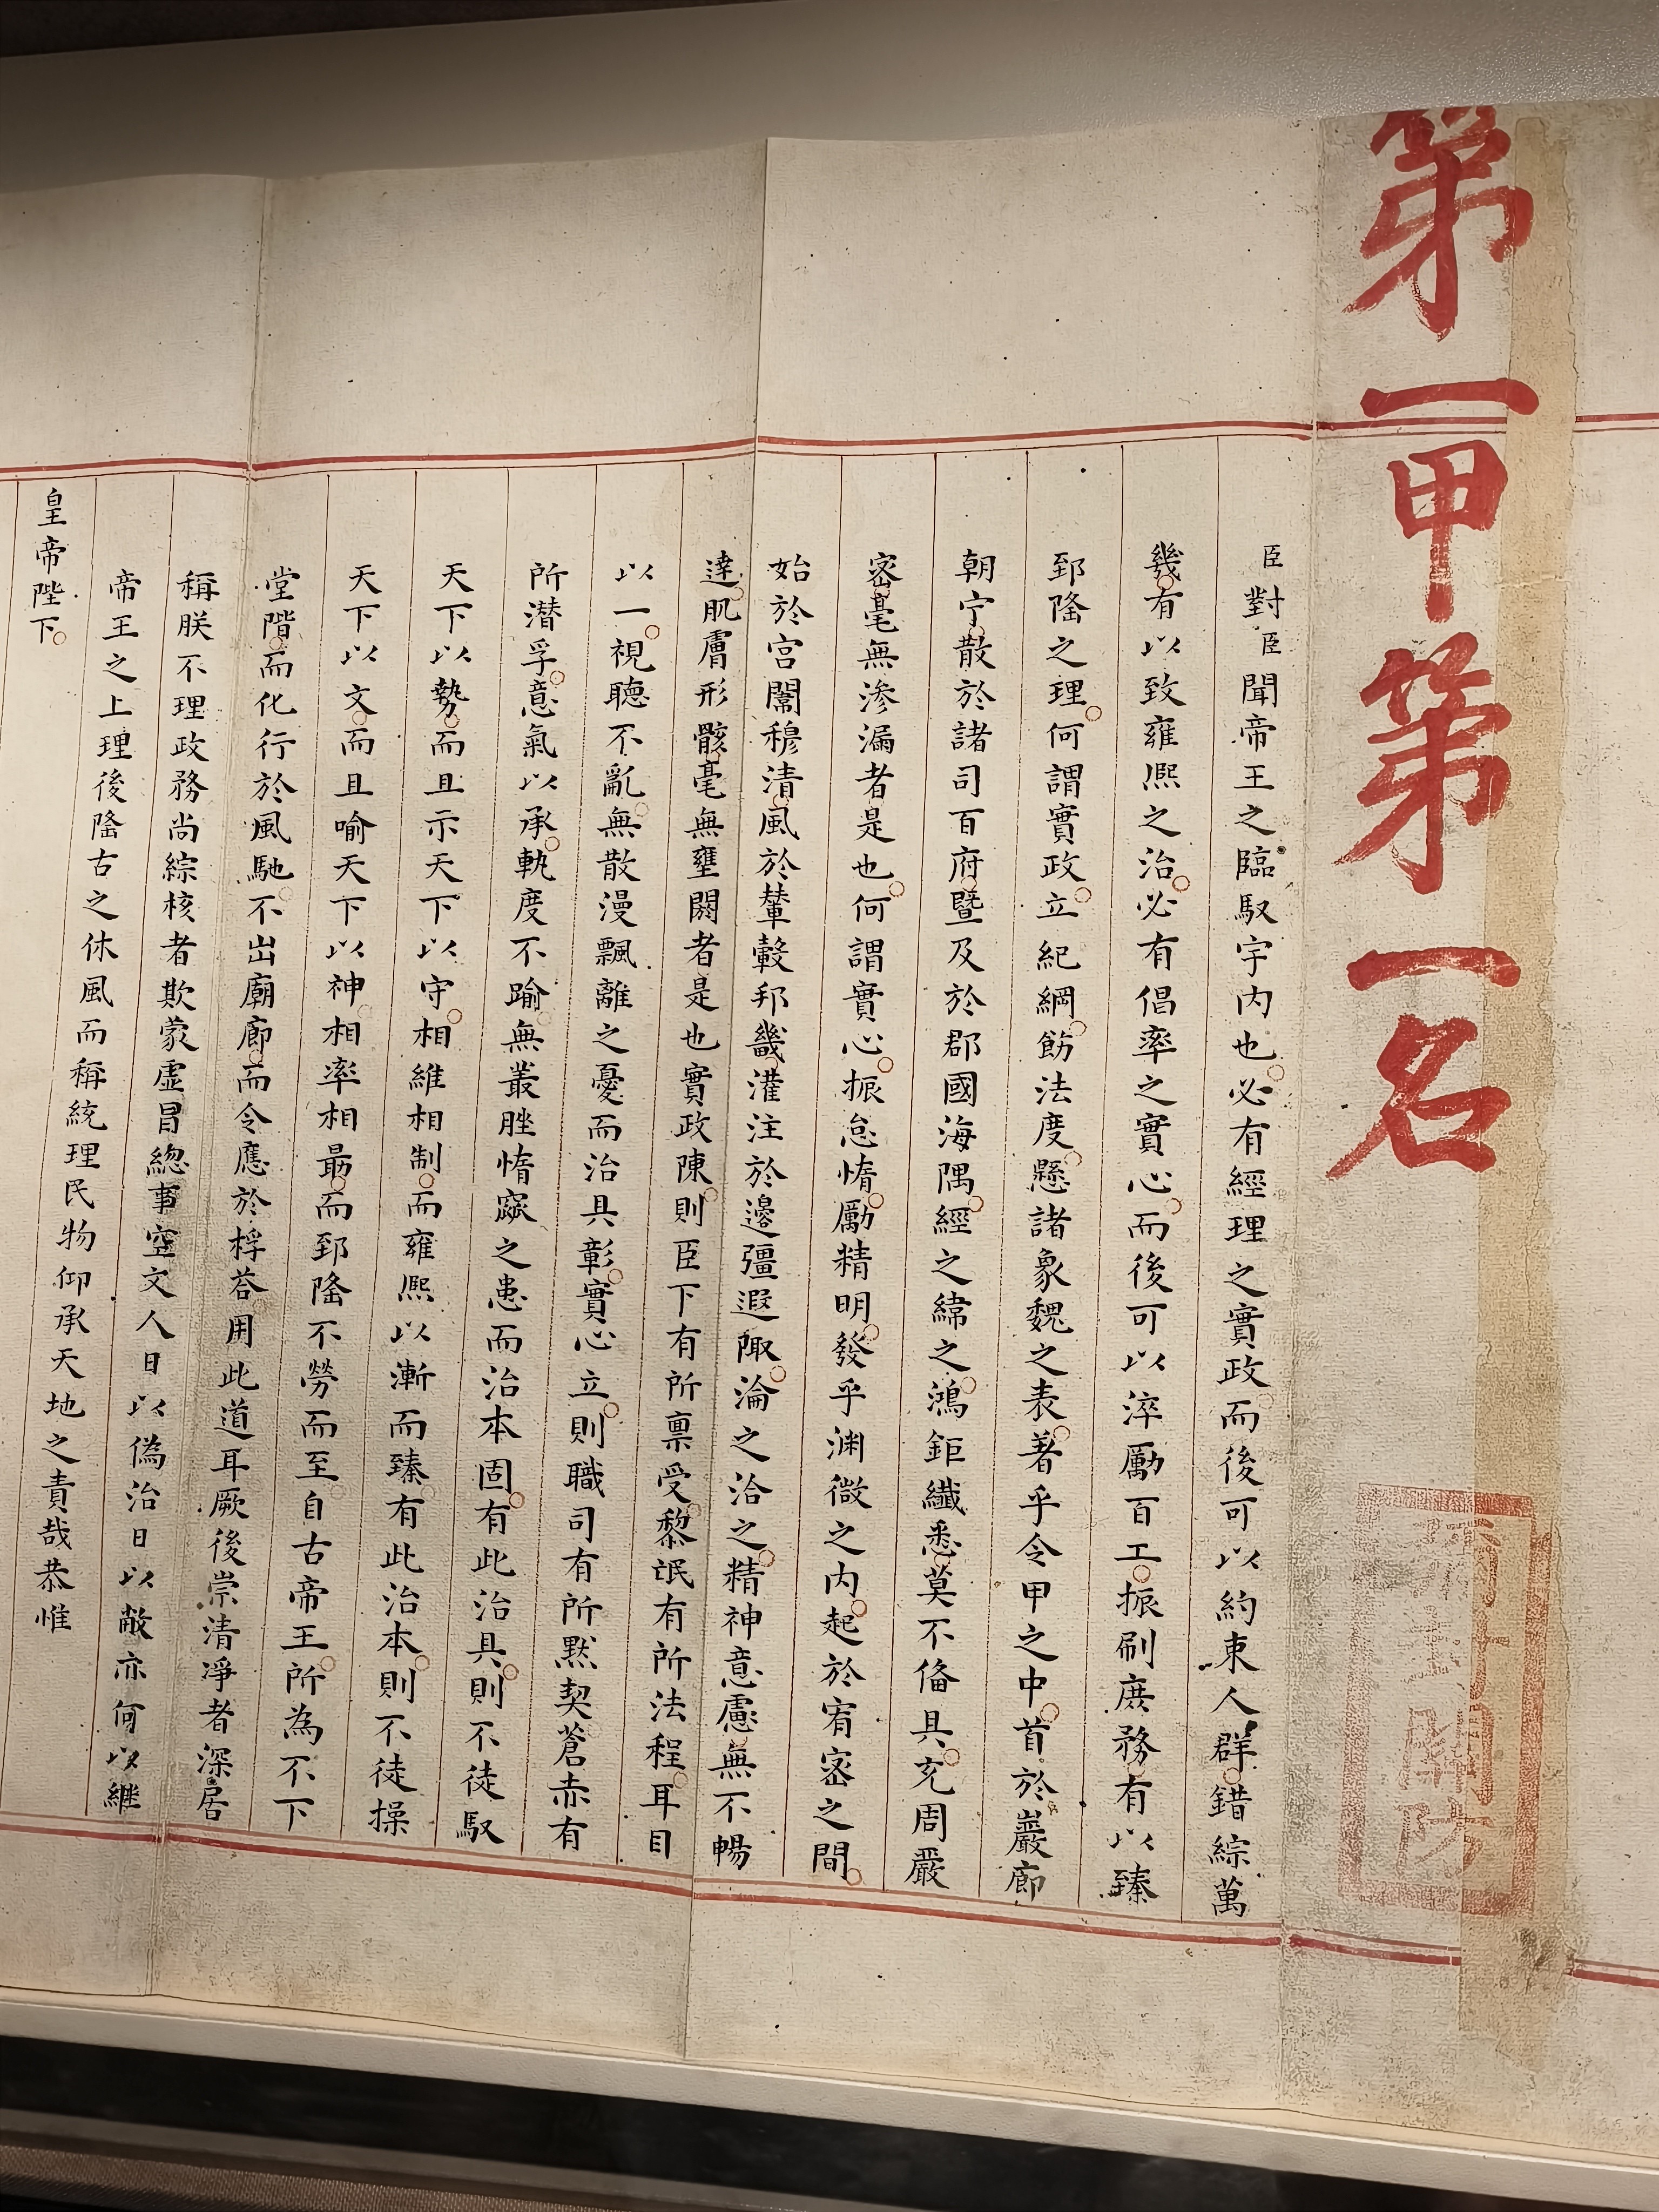 第一甲第一名
臣對臣聞帝王之臨馭宇内也必有經理之實政而後可以約束人群錯綜萬
幾有以致雍熈之治必有倡率之實心而後可以淬勵百工振刷庶務有以臻
郅隆之理何謂實政立紀綱飭法度懸諸象魏之表著乎令甲之中首於巖廊
朝宁散於諸司百府暨及於郡國海隅經之緯之鴻鉅纖悉莫不俻具充周嚴
宻毫無滲漏者是也何謂實心振怠惰勵精明發乎渊微之内起於宥宻之間
始於宫闈穆清風於輦轂邦畿灌注於邉疆遐陬淪之洽之精神意慮無不暢
逹肌膚形骸毫無壅閼者是也實政陳則臣下有所禀受黎氓有所法程耳目
以一視聽不亂無散漫飄離之憂而治具彰實心立則職司有所默契蒼赤有
所潜孚意氣以承軌度不踰無叢脞惰窳之患而治本固有此治具則不徒馭
天下以勢而且示天下以守相維相制而雍熈以漸而臻有此治本則不徒操
天下以文而且喻天下以神相率相最而郅隆不勞而至自古帝王所為不下
堂階而化行於風馳不出廟廊而令應於桴荅用此道耳厥後崇清凈者深居
稱朕不理政務尚綜核者欺蒙虚冒總事空文人日以偽治日以敝亦何以継
帝王之上理後隆古之休風而稱統理民物仰承天地之責哉恭惟
皇帝陛下